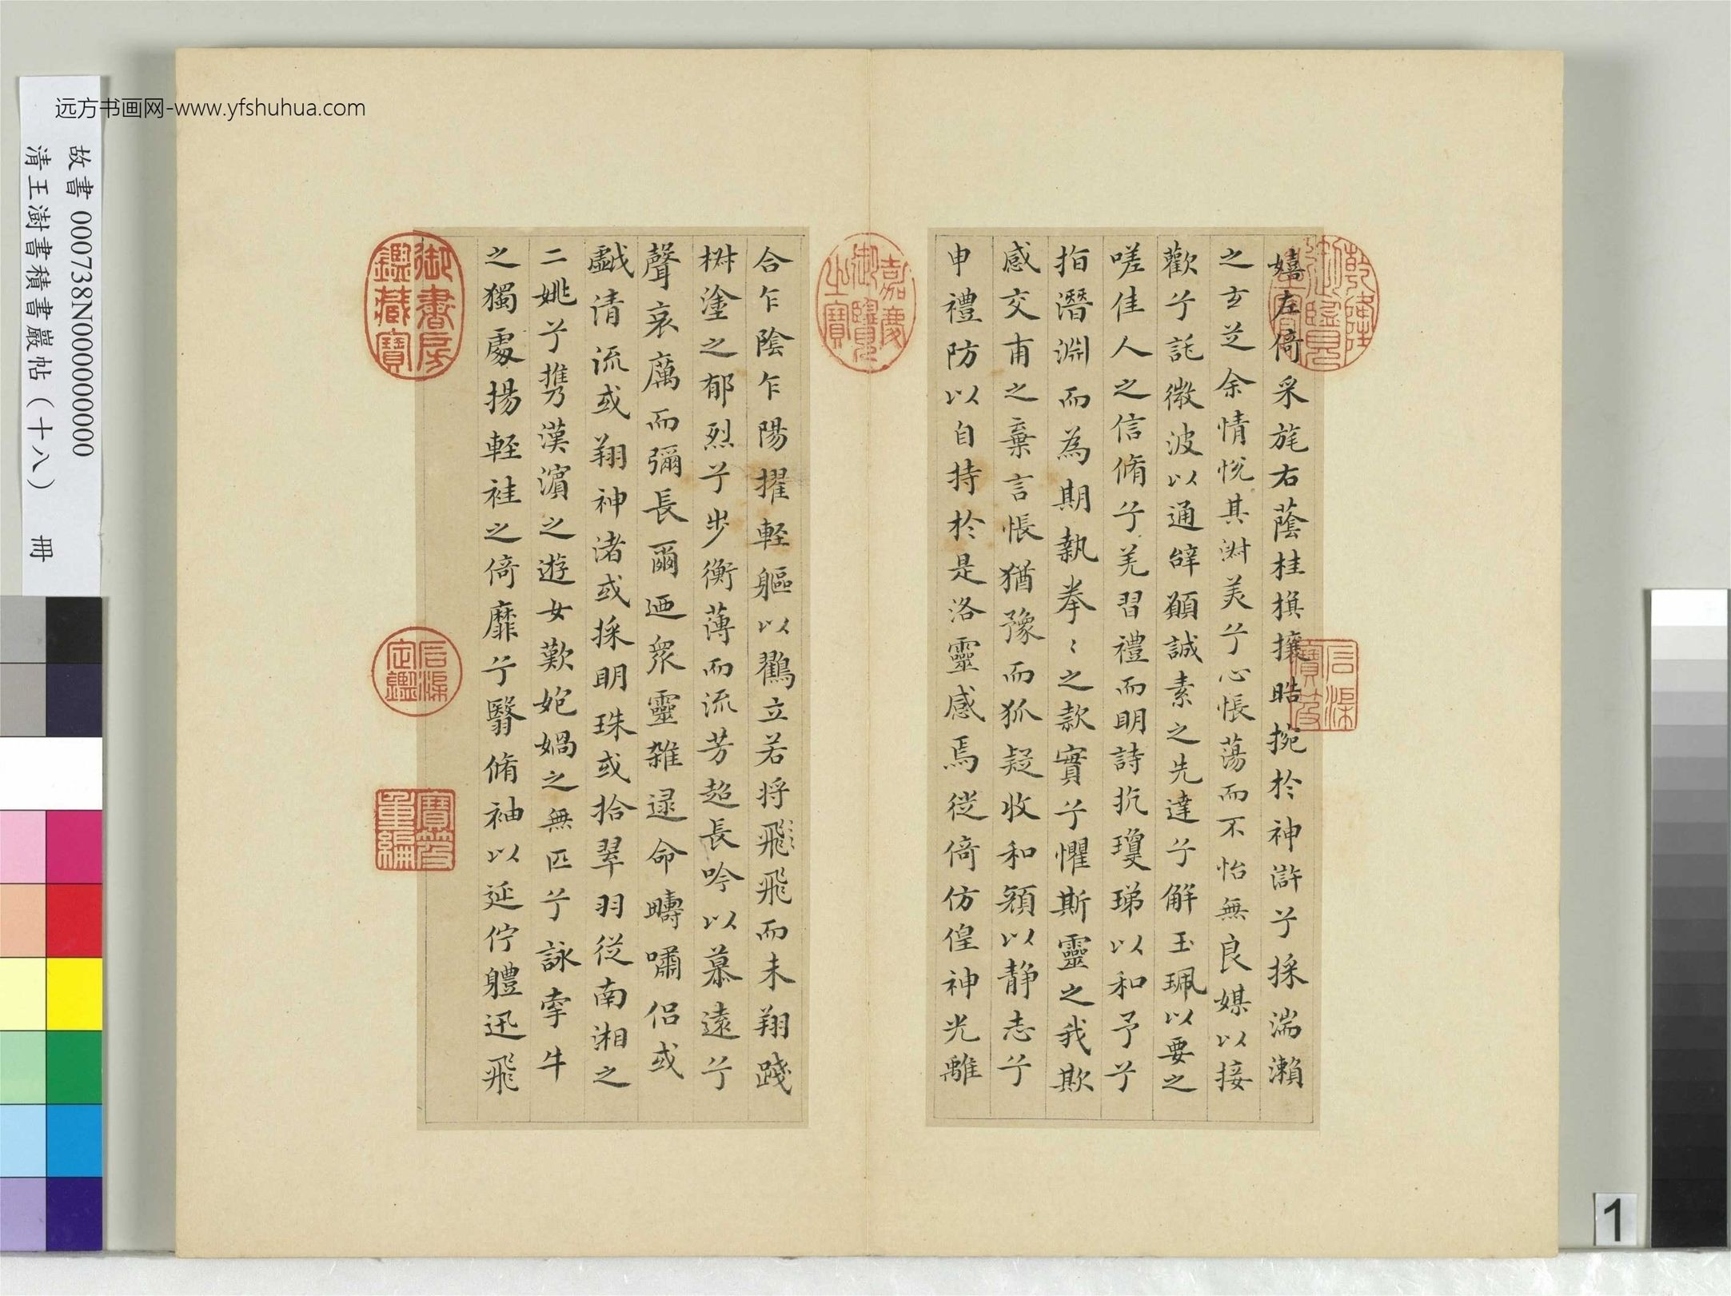 远方书画网-www.yfshuhua.com
故書 000738N000000000
清王澍書積書巖帖（十八） 冊
嬉左倚采旄右蔭桂旗攘皓捥於神滸兮採湍瀨
之玄芝余情悅其淑美兮心悵蕩而不怡無良媒以接
歡兮託微波以通辭願誠素之先達兮解玉珮以要之
嗟佳人之信脩兮羌習禮而明詩抗瓊珶以和予兮
指潛淵而為期執拳〻之款實兮懼斯靈之我欺
感交甫之棄言悵猶豫而狐疑收和顏以静志兮
申禮防以自持於是洛靈感焉徙倚仿偟神光離
合乍陰乍陽擢輕軀以鸖立若將飛飛而未翔踐
椒塗之郁烈兮步蘅薄而流芳超長吟以慕遠兮
聲哀厲而彌長爾迺衆靈雜遝命疇嘯侶或
戲清流或翔神渚或採明珠或拾翠羽從南湘之
二姚兮攜漢濱之遊女歎妑媧之無匹兮詠牽牛
之獨處揚輕袿之倚靡兮翳脩袖以延佇軆迅飛
乾隆御覽之寶
石渠寶笈
嘉慶御覽之寶
御書房鑑藏寶
石渠定鑑
寶笈重編
1